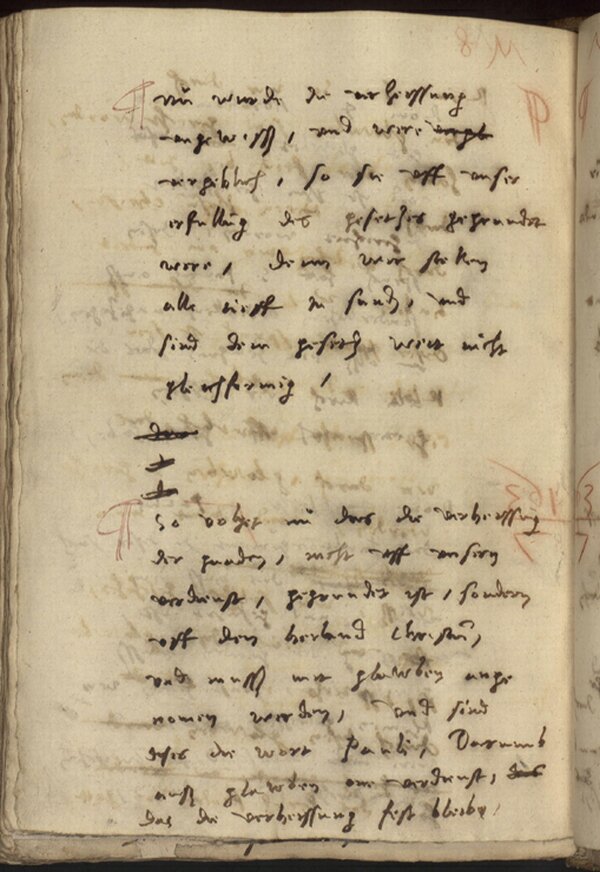 M 8
¶ nu wurde die verheissung
ungewiss, und were
vergeblich, so sie uff unser
erfullūg des gesetzes gegrundet
were, denn wir steken
alle tieff in sund, und
sind dem gesetz weit nicht
gleichformig /
¶ so volget nu das die verheissūg
der gnaden, nicht uff unsern
verdienst, gegrundet ist, sondern
uff den herland Christū,
und muss mit glawben ange
nomen werden, und sind
dises die wort Pauli, Darumb
auss glawben one verdienst, das
das die verheissung fest bleibe,